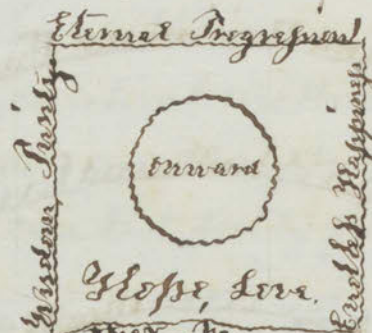 Eternal Progression
Wisdom, Purity
Onward
Endless Happiness
Hope, Love.